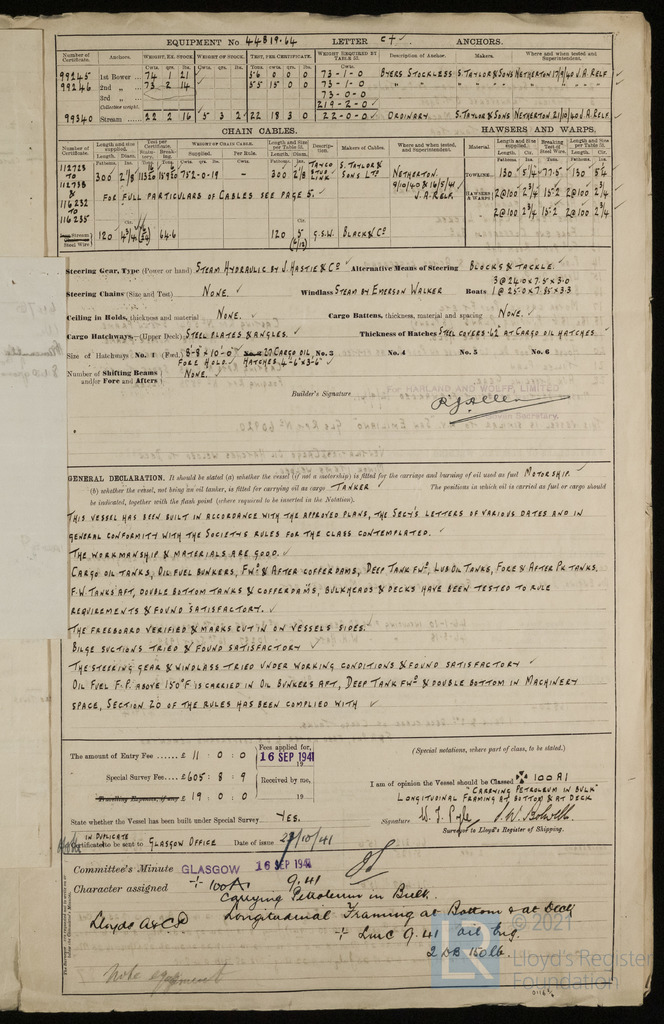 EQUIPMENT No 44819.64 LETTER C+ ANCHORS.
Number of Certificate. Anchors. WEIGHT, EX. STOCK. WEIGHT OF STOCK. TEST, PER CERTIFICATE. WEIGHT REQUIRED BY TABLE 53. Description of Anchor. Makers. Where and when tested and Superintendent.
99245 1st Bower 74 1 21 56 0 0 0 73-1-0 BYERS STOCKLESS S. TAYLOR & SONS NETHERTON 17/9/40 J.A. RELF
99246 2nd " 73 2 14 55 15 0 0 73-1-0 " " " " "
3rd " 73-0-0
Collective weight 219-2-0
99340 Stream 22 2 16 5 3 2 22 18 3 0 22-0-0 ORDINARY S. TAYLOR & SONS NETHERTON 21/10/40 J.A. RELF
CHAIN CABLES. HAWSERS AND WARPS.
112725 TO 112738 & 116232 TO 116235
300 2 1/8 752-0-19 - 300 2 1/8 TAYCO S. TAYLOR & SONS LTD NETHERTON. 9/10/40 & 16/5/41 J.A. RELF.
FOR FULL PARTICULARS OF CABLES SEE PAGE 5.
TOWLINE 130 5 1/4 77.5 130 5 1/4
HAWSERS & WARPS 2@100 2 3/4 15.2 2@100 2 3/4
2@100 2 3/4 15.2 2@100 2 3/4
Stream Steel Wire 120 4 3/4 64.6 120 5 G.S.W. BLACK & Co
Steering Gear, Type (Power or hand) STEAM HYDRAULIC BY J. HASTIE & Co Alternative Means of Steering BLOCKS & TACKLE
Steering Chains (Size and Test) NONE. Windlass STEAM BY EMERSON WALKER Boats 3@24.0 x 7.5 x 3.0
1@25.0 x 7.85 x 3.3
Ceiling in Holds, thickness and material NONE. Cargo Battens, thickness, material and spacing NONE.
Cargo Hatchways.—(Upper Deck) STEEL PLATES & ANGLES. Thickness of Hatches STEEL COVERS .62" AT CARGO OIL HATCHES
Size of Hatchways No. 1 (Fwd.) 8-8 x 10-0 FORE HOLD. 20 CARGO OIL HATCHES 4-6 x 3-6 No. 3 No. 4 No. 5 No. 6
Number of Shifting Beams and/or Fore and Afters NONE.
For HARLAND AND WOLFF, LIMITED
Builder's Signature R J Allen
Secretary.
GENERAL DECLARATION. It should be stated (a) whether the vessel (if not a motorship) is fitted for the carriage and burning of oil used as fuel MOTORSHIP.
(b) whether the vessel, not being an oil tanker, is fitted for carrying oil as cargo TANKER The positions in which oil is carried as fuel or cargo should
be indicated, together with the flash point (where required to be inserted in the Notation).
THIS VESSEL HAS BEEN BUILT IN ACCORDANCE WITH THE APPROVED PLANS, THE SECY'S LETTERS OF VARIOUS DATES AND IN
GENERAL CONFORMITY WITH THE SOCIETY'S RULES FOR THE CLASS CONTEMPLATED.
THE WORKMANSHIP & MATERIALS ARE GOOD.
CARGO OIL TANKS, OIL FUEL BUNKERS, FWD & AFTER COFFERDAMS, DEEP TANK FWD, LUB OIL TANKS, FORE & AFTER PK TANKS.
F.W. TANKS AFT, DOUBLE BOTTOM TANKS & COFFERDAMS, BULKHEADS & DECKS HAVE BEEN TESTED TO RULE
REQUIREMENTS & FOUND SATISFACTORY.
THE FREEBOARD VERIFIED & MARKS CUT IN ON VESSELS SIDES.
BILGE SUCTIONS TRIED & FOUND SATISFACTORY
THE STEERING GEAR & WINDLASS TRIED UNDER WORKING CONDITIONS & FOUND SATISFACTORY
OIL FUEL F.P. ABOVE 150°F IS CARRIED IN OIL BUNKERS AFT, DEEP TANK FWD & DOUBLE BOTTOM IN MACHINERY
SPACE, SECTION 20 OF THE RULES HAS BEEN COMPLIED WITH
The amount of Entry Fee £ 11 : 0 : 0 Fees applied for, 16 SEP 1941 (Special notations, where part of class, to be stated.)
Special Survey Fee £605 : 8 : 9 Received by me,
Travelling Expenses, if any £ 19 : 0 : 0 19
I am of opinion the Vessel should be Classed ✠ 100 A1
"CARRYING PETROLEUM IN BULK"
LONGITUDINAL FRAMING AT BOTTOM & AT DECK
State whether the Vessel has been built under Special Survey YES. Signature W. J. Pyle
Surveyor to Lloyd's Register of Shipping.
IN DUPLICATE
Certificate to be sent to GLASGOW OFFICE Date of issue 23/10/41
Committee's Minute GLASGOW 16 SEP 1941
Character assigned + 100A1 9.41
Carrying Petroleum in Bulk.
Lloyds A&CP Longitudinal Framing at Bottom & at Deck
+ LMC 9.41 oil eng.
2 DB 150 lb
© 2021
LR Lloyd's Register
Foundation